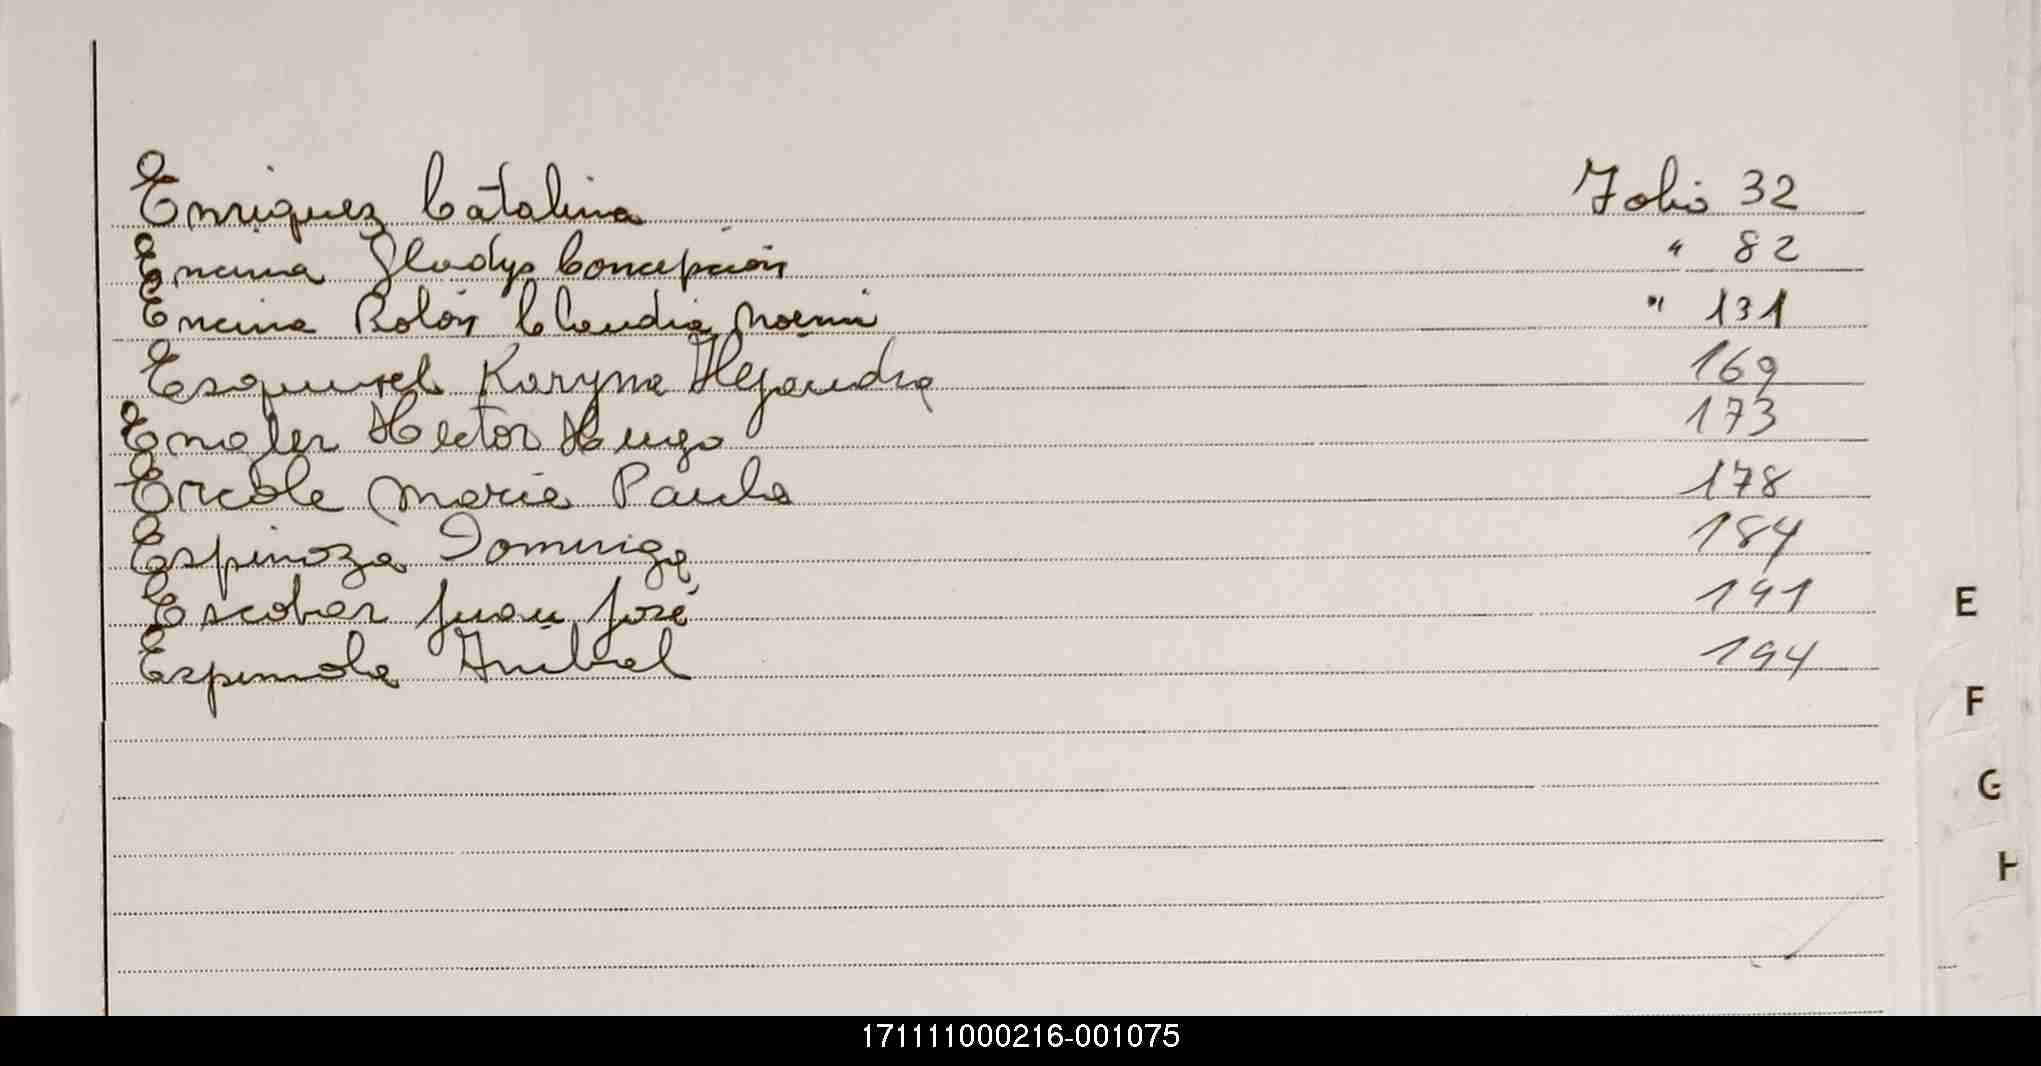 Enriquez Catalina Folio 32
Encina Gladys Concepción " 82
Encina Rolón Claudia Noemi " 131
Esquivel Karyna Alejandra 169
Engler Hector Hugo 173
Ercole Maria Paula 178
Espinoza Dominga 184
Escobar Juan José 191
E
Espinola Anibal 194
F
G
H
171111000216-001075